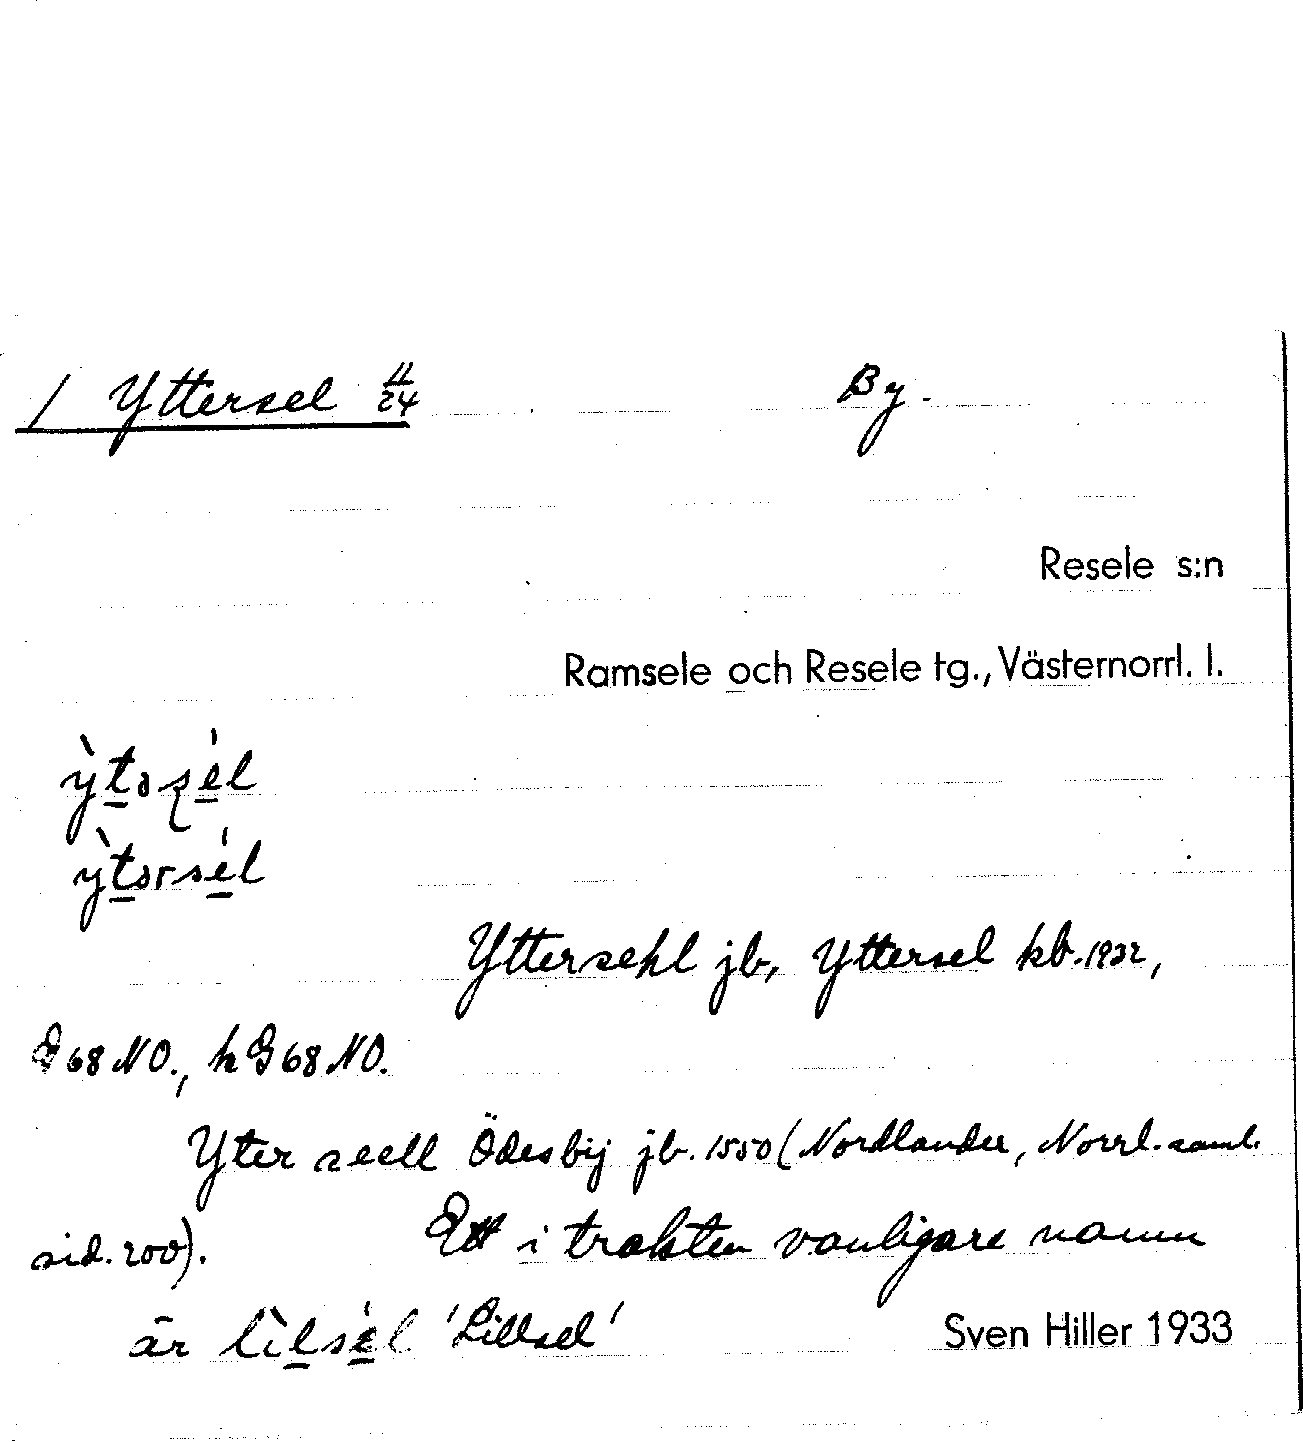 1 Yttersel 11/24 By.
Resele s:n
Ramsele och Resele tg., Västernorrl. l.
ỳtəʂél
ỳtərsél
Yttersehl jb, Yttersel kb. 1932,
G 68 NO., h G 68 NO.
Yter seell Ödesbÿ jb. 1550 (Nordlander, Norrl. saml.
sid. 200). Ett i trakten vanligare namn
är lìlsél 'Lillsel' Sven Hiller 1933